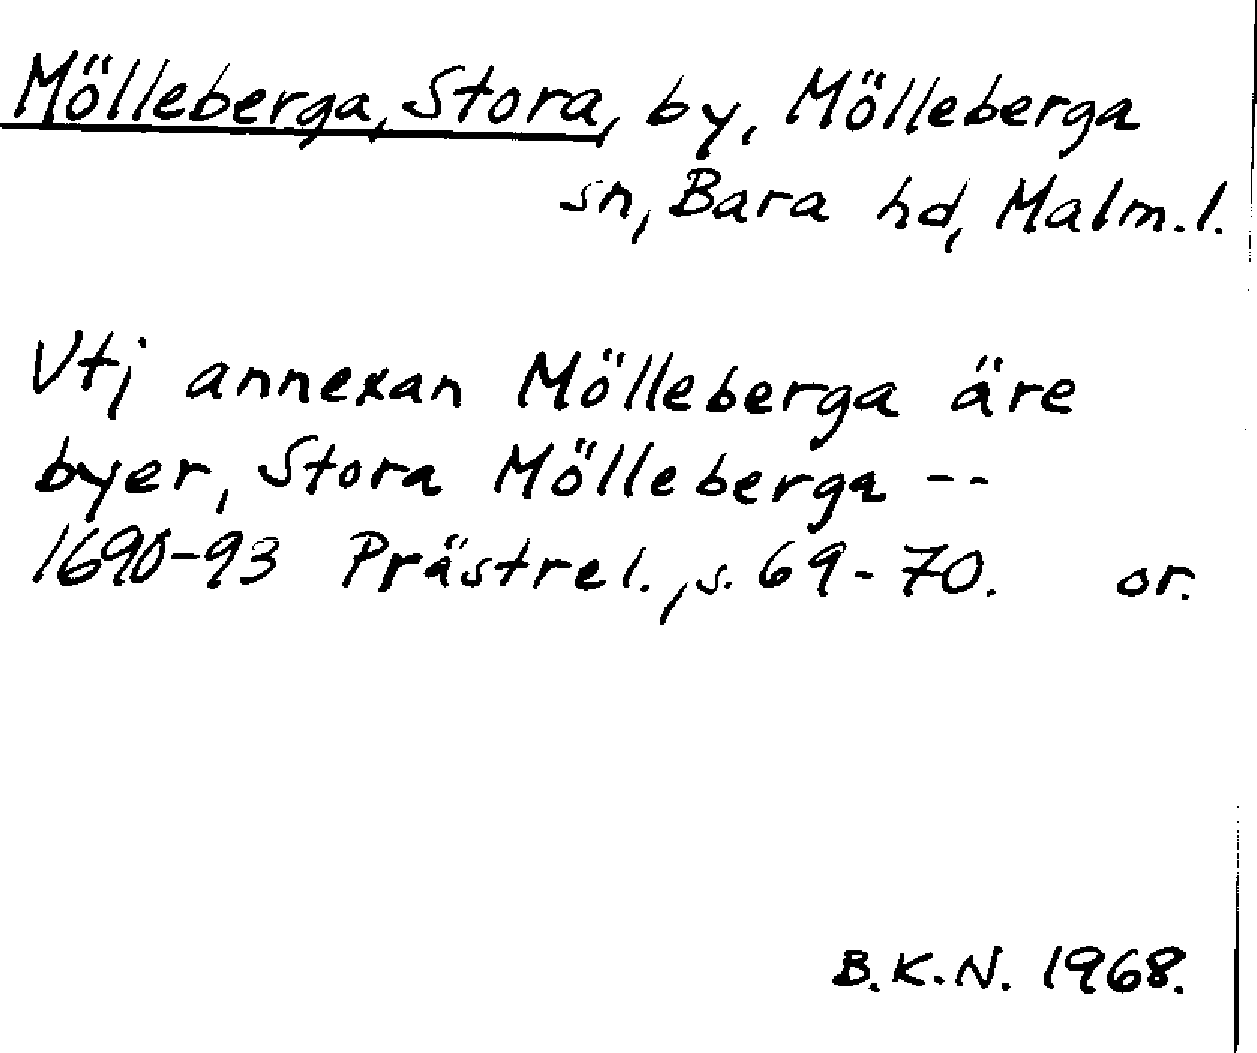 Mölleberga, Stora, by, Mölleberga
sn, Bara hd, Malm.l.
Vtj annexan Mölleberga äre
byer, Stora Mölleberga --
1690-93 Prästrel., s. 69-70. or.
B.K.N. 1968.